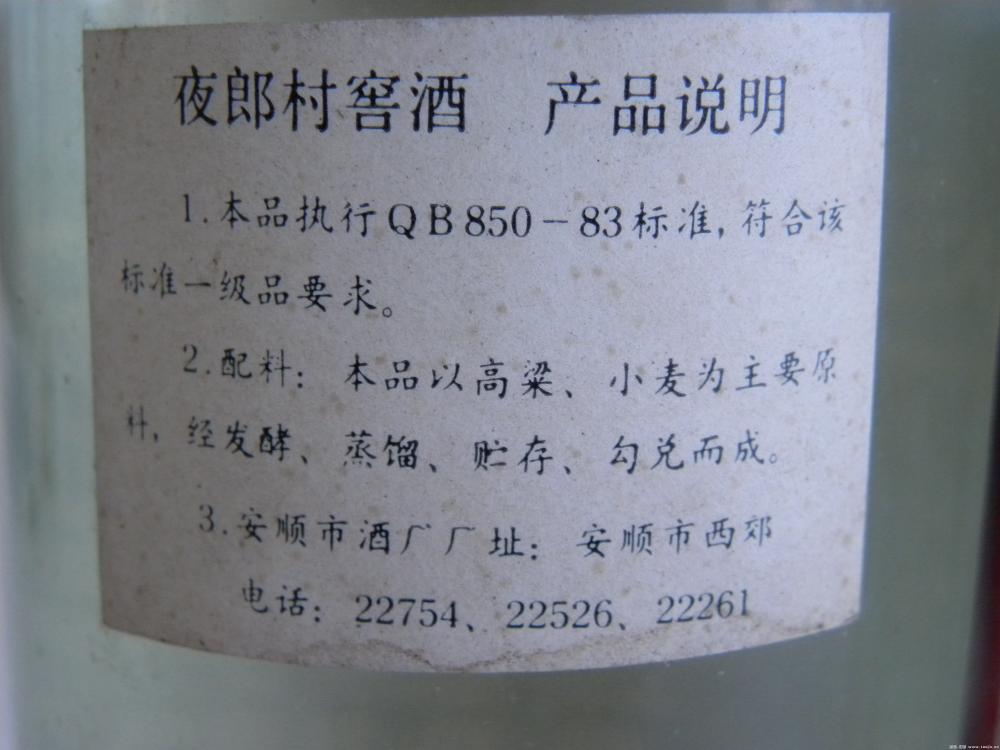 夜郎村窖酒 产品说明
1.本品执行QB850-83标准,符合该
标准一级品要求。
2.配料: 本品以高粱、小麦为主要原
料,经发酵、蒸馏、贮存、勾兑而成。
3.安顺市酒厂厂址: 安顺市西郊
电话: 22754、22526、22261